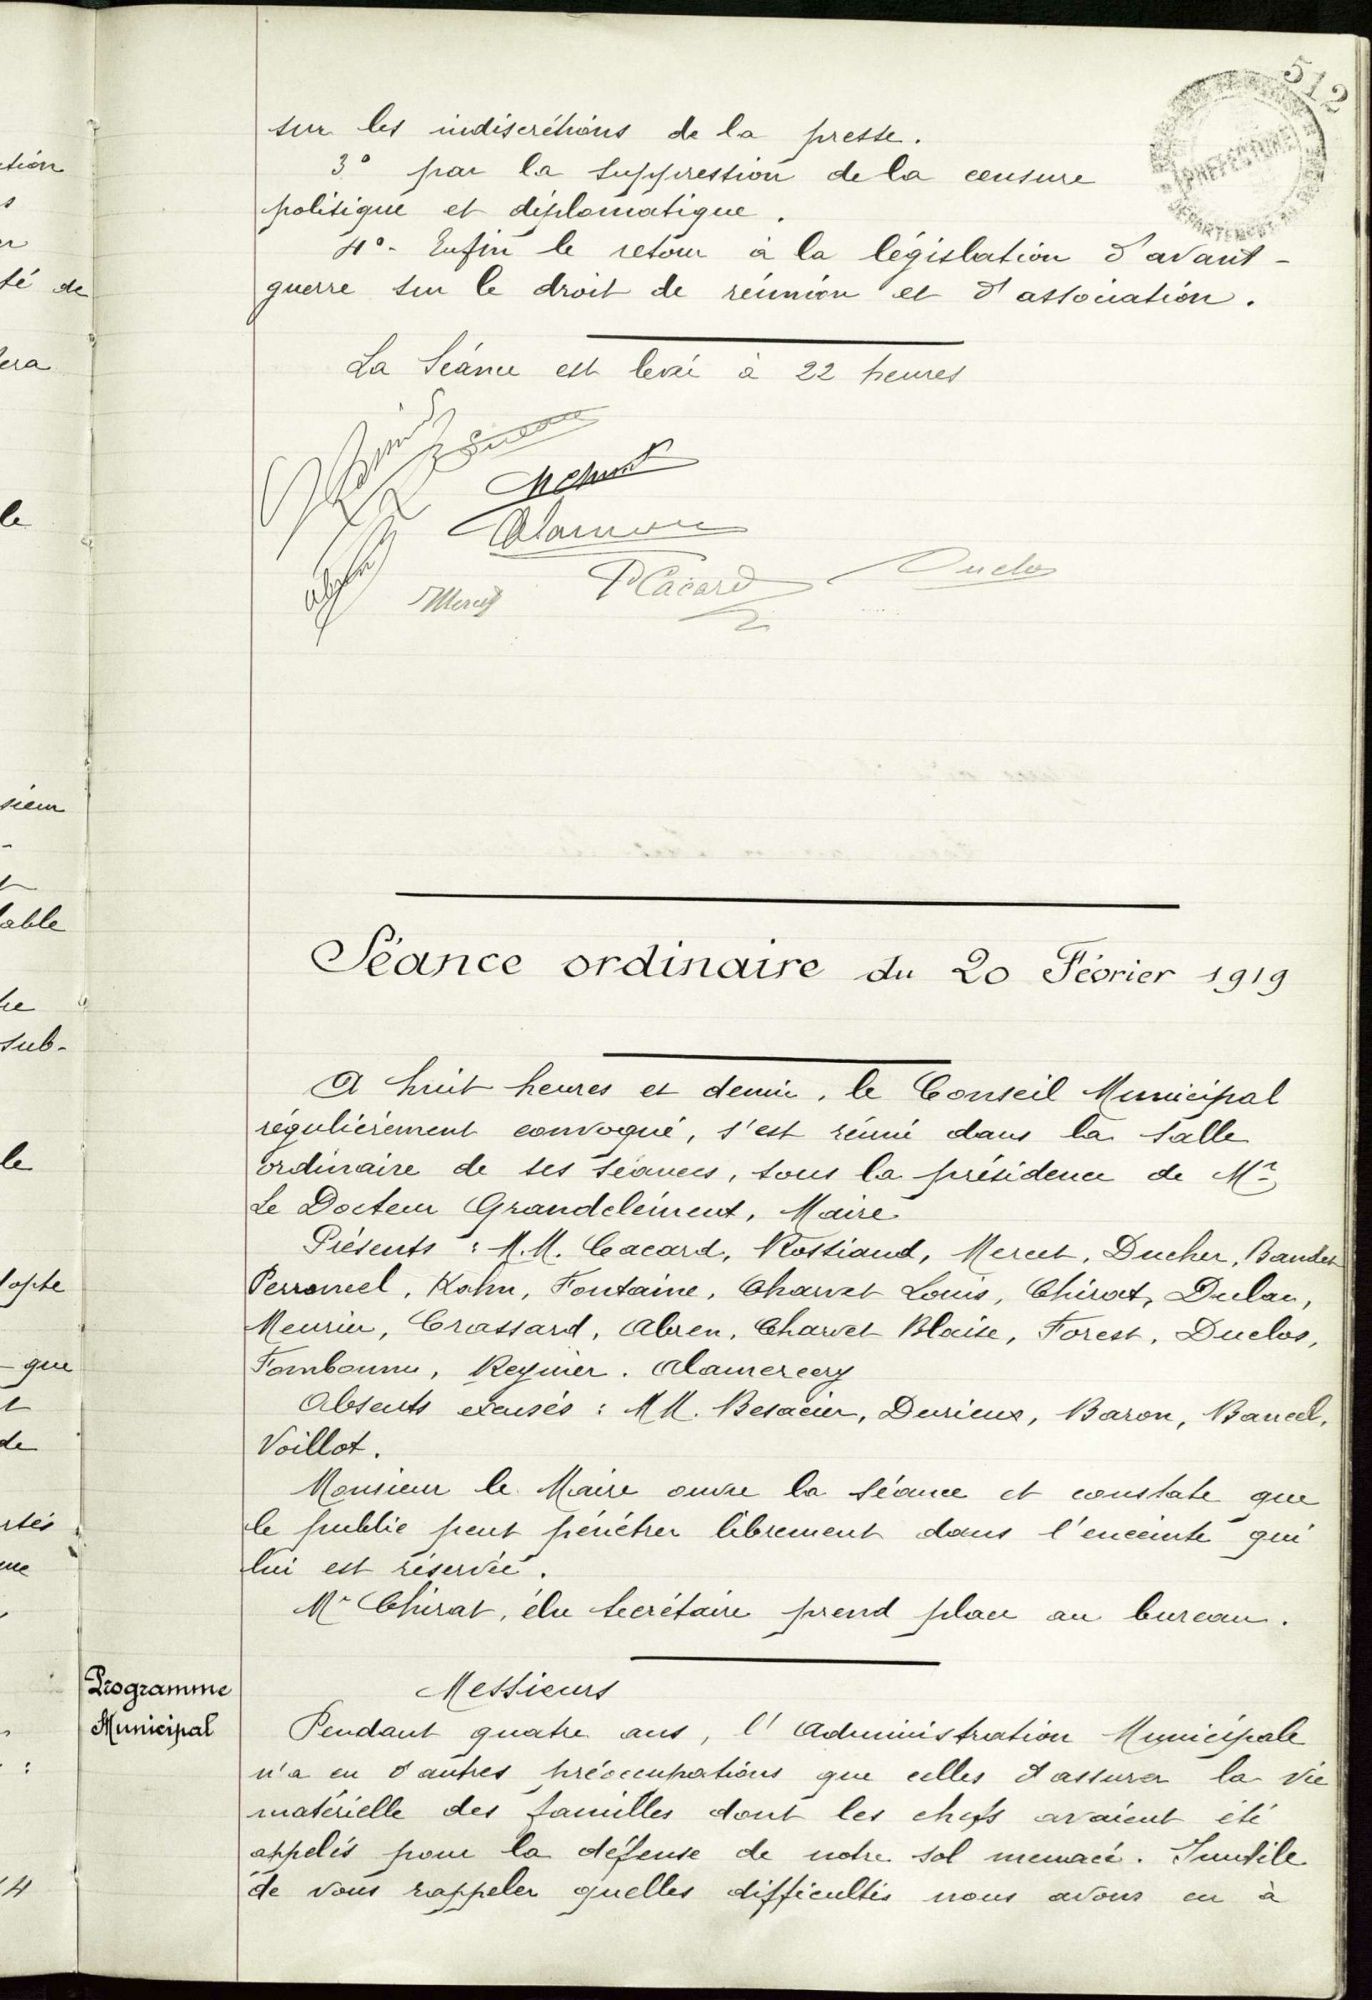 512
PREFECTURE
sur les indiscrétions de la presse.
3° par la suppression de la censure
politique et diplomatique.
4°- Enfin le retour à la législation d'avant-
guerre sur le droit de réunion et d'association.
La Séance est levée à 22 heures
Alamercery
Mercet
P Cacard
Duclos
Séance ordinaire du 20 Février 1919
A huit heures et demie, le Conseil Municipal
régulièrement convoqué, s'est réuni dans la salle
ordinaire de ses séances, sous la présidence de Mr
Le Docteur Grandclément, Maire
Présents : M.M. Cacard, Rossiaud, Mercet, Ducher, Baudet
Perronnel, Kahn, Fontaine, Charvet Louis, Chirat, Dulau,
Meurier, Crassard, Abren, Charvet Blaise, Forest, Duclos,
Fombonne, Reynier. Alamercery
Absents excusés : MM. Besacier, Durieux, Baron, Bancel,
Voillot.
Monsieur le Maire ouvre la séance et constate que
le public peut pénétrer librement dans l'enceinte qui
lui est réservée.
Mr Chirat, élu secrétaire prend place au bureau.
Programme
Municipal
Messieurs
Pendant quatre ans, l'Administration Municipale
n'a eu d'autres préoccupations que celles d'assurer la vie
matérielle des familles dont les chefs avaient été
appelés pour la défense de notre sol menacé. Inutile
de vous rappeler quelles difficultés nous avons eu à